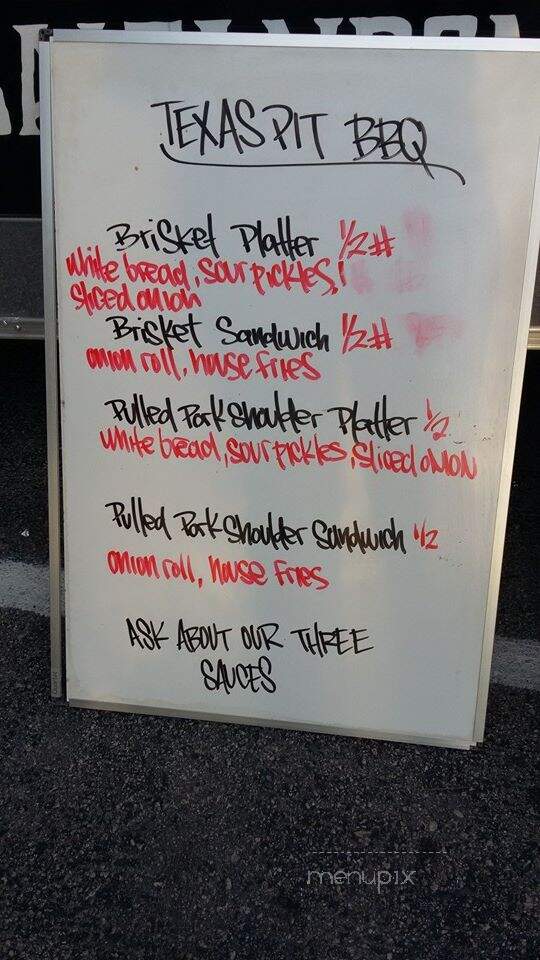 TEXAS PIT BBQ
Brisket Platter 1/2#
white bread, sour pickles,
sliced onion
Brisket Sandwich 1/2#
onion roll, house fries
Pulled Pork Shoulder Platter 1/2
white bread, sour pickles, sliced onion
Pulled Pork Shoulder Sandwich 1/2
onion roll, house fries
ASK ABOUT OUR THREE
SAUCES
menupix